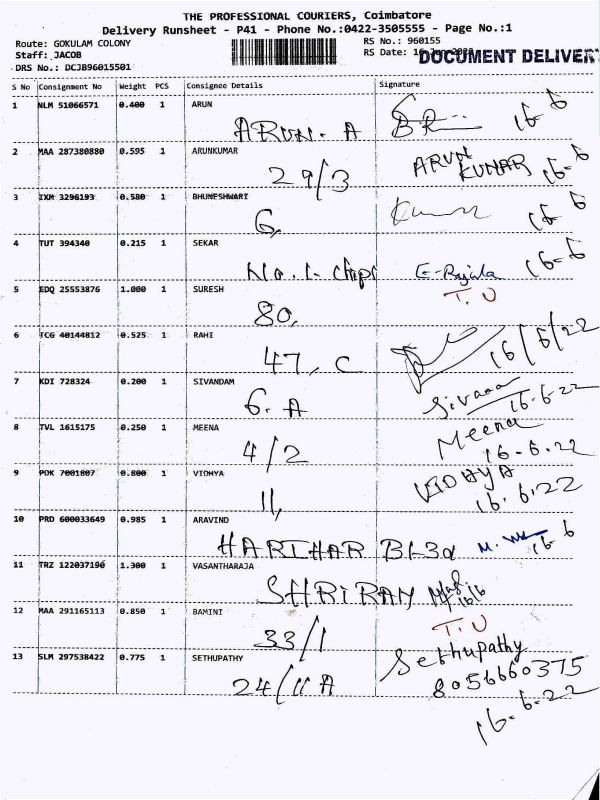 THE PROFESSIONAL COURIERS, Coimbatore
Delivery Runsheet - P41 - Phone No.:0422-3505555 - Page No.:1
Route: GOKULAM COLONY
RS No.: 960155
Staff: JACOB
RS Date: 16 Jun
DOCUMENT DELIVER
DRS No.: DCJB96015501
S No Consignment No Weight PCS Consignee Details Signature
1 NLM 51066571 0.400 1 ARUN
ARUN. A 16-6
2 MAA 287380880 0.595 1 ARUNKUMAR
29/3 ARUN KUMAR 16-6
3 IXM 3296193 0.580 1 BHUNESHWARI
6, 16-6
4 TUT 394340 0.215 1 SEKAR
No. 1- chips 16-6
5 EDQ 25553876 1.000 1 SURESH
80, T.U
6 TCG 40144812 0.525 1 RAHI
47, C 16/6/22
7 KDI 728324 0.200 1 SIVANDAM
6. A 16-6-22
8 TVL 1615175 0.250 1 MEENA
4/2 Meena 16-6-22
9 PDK 7001807 0.800 1 VIDHYA
11, VIDHYA 16.6.22
10 PRD 600033649 0.985 1 ARAVIND
HARIHAR 16-6
11 TRZ 122037190 1.300 1 VASANTHARAJA
SHRIRAM
12 MAA 291165113 0.850 1 BAMINI
33/1 T.U
13 SLM 297538422 0.775 1 SETHUPATHY
24/11 A Sethupathy
8056660375
16-6-22